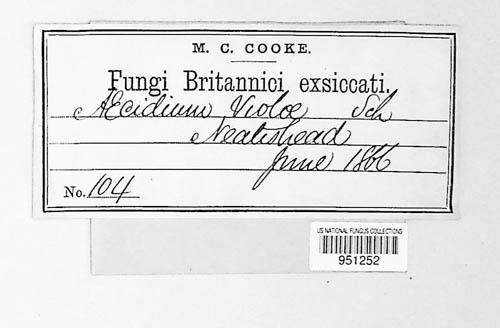 M. C. COOKE.
Fungi Britannici exsiccati.
Æcidium Violæ Sch
Neatishead
June 1866
No. 104
US NATIONAL FUNGUS COLLECTIONS
951252